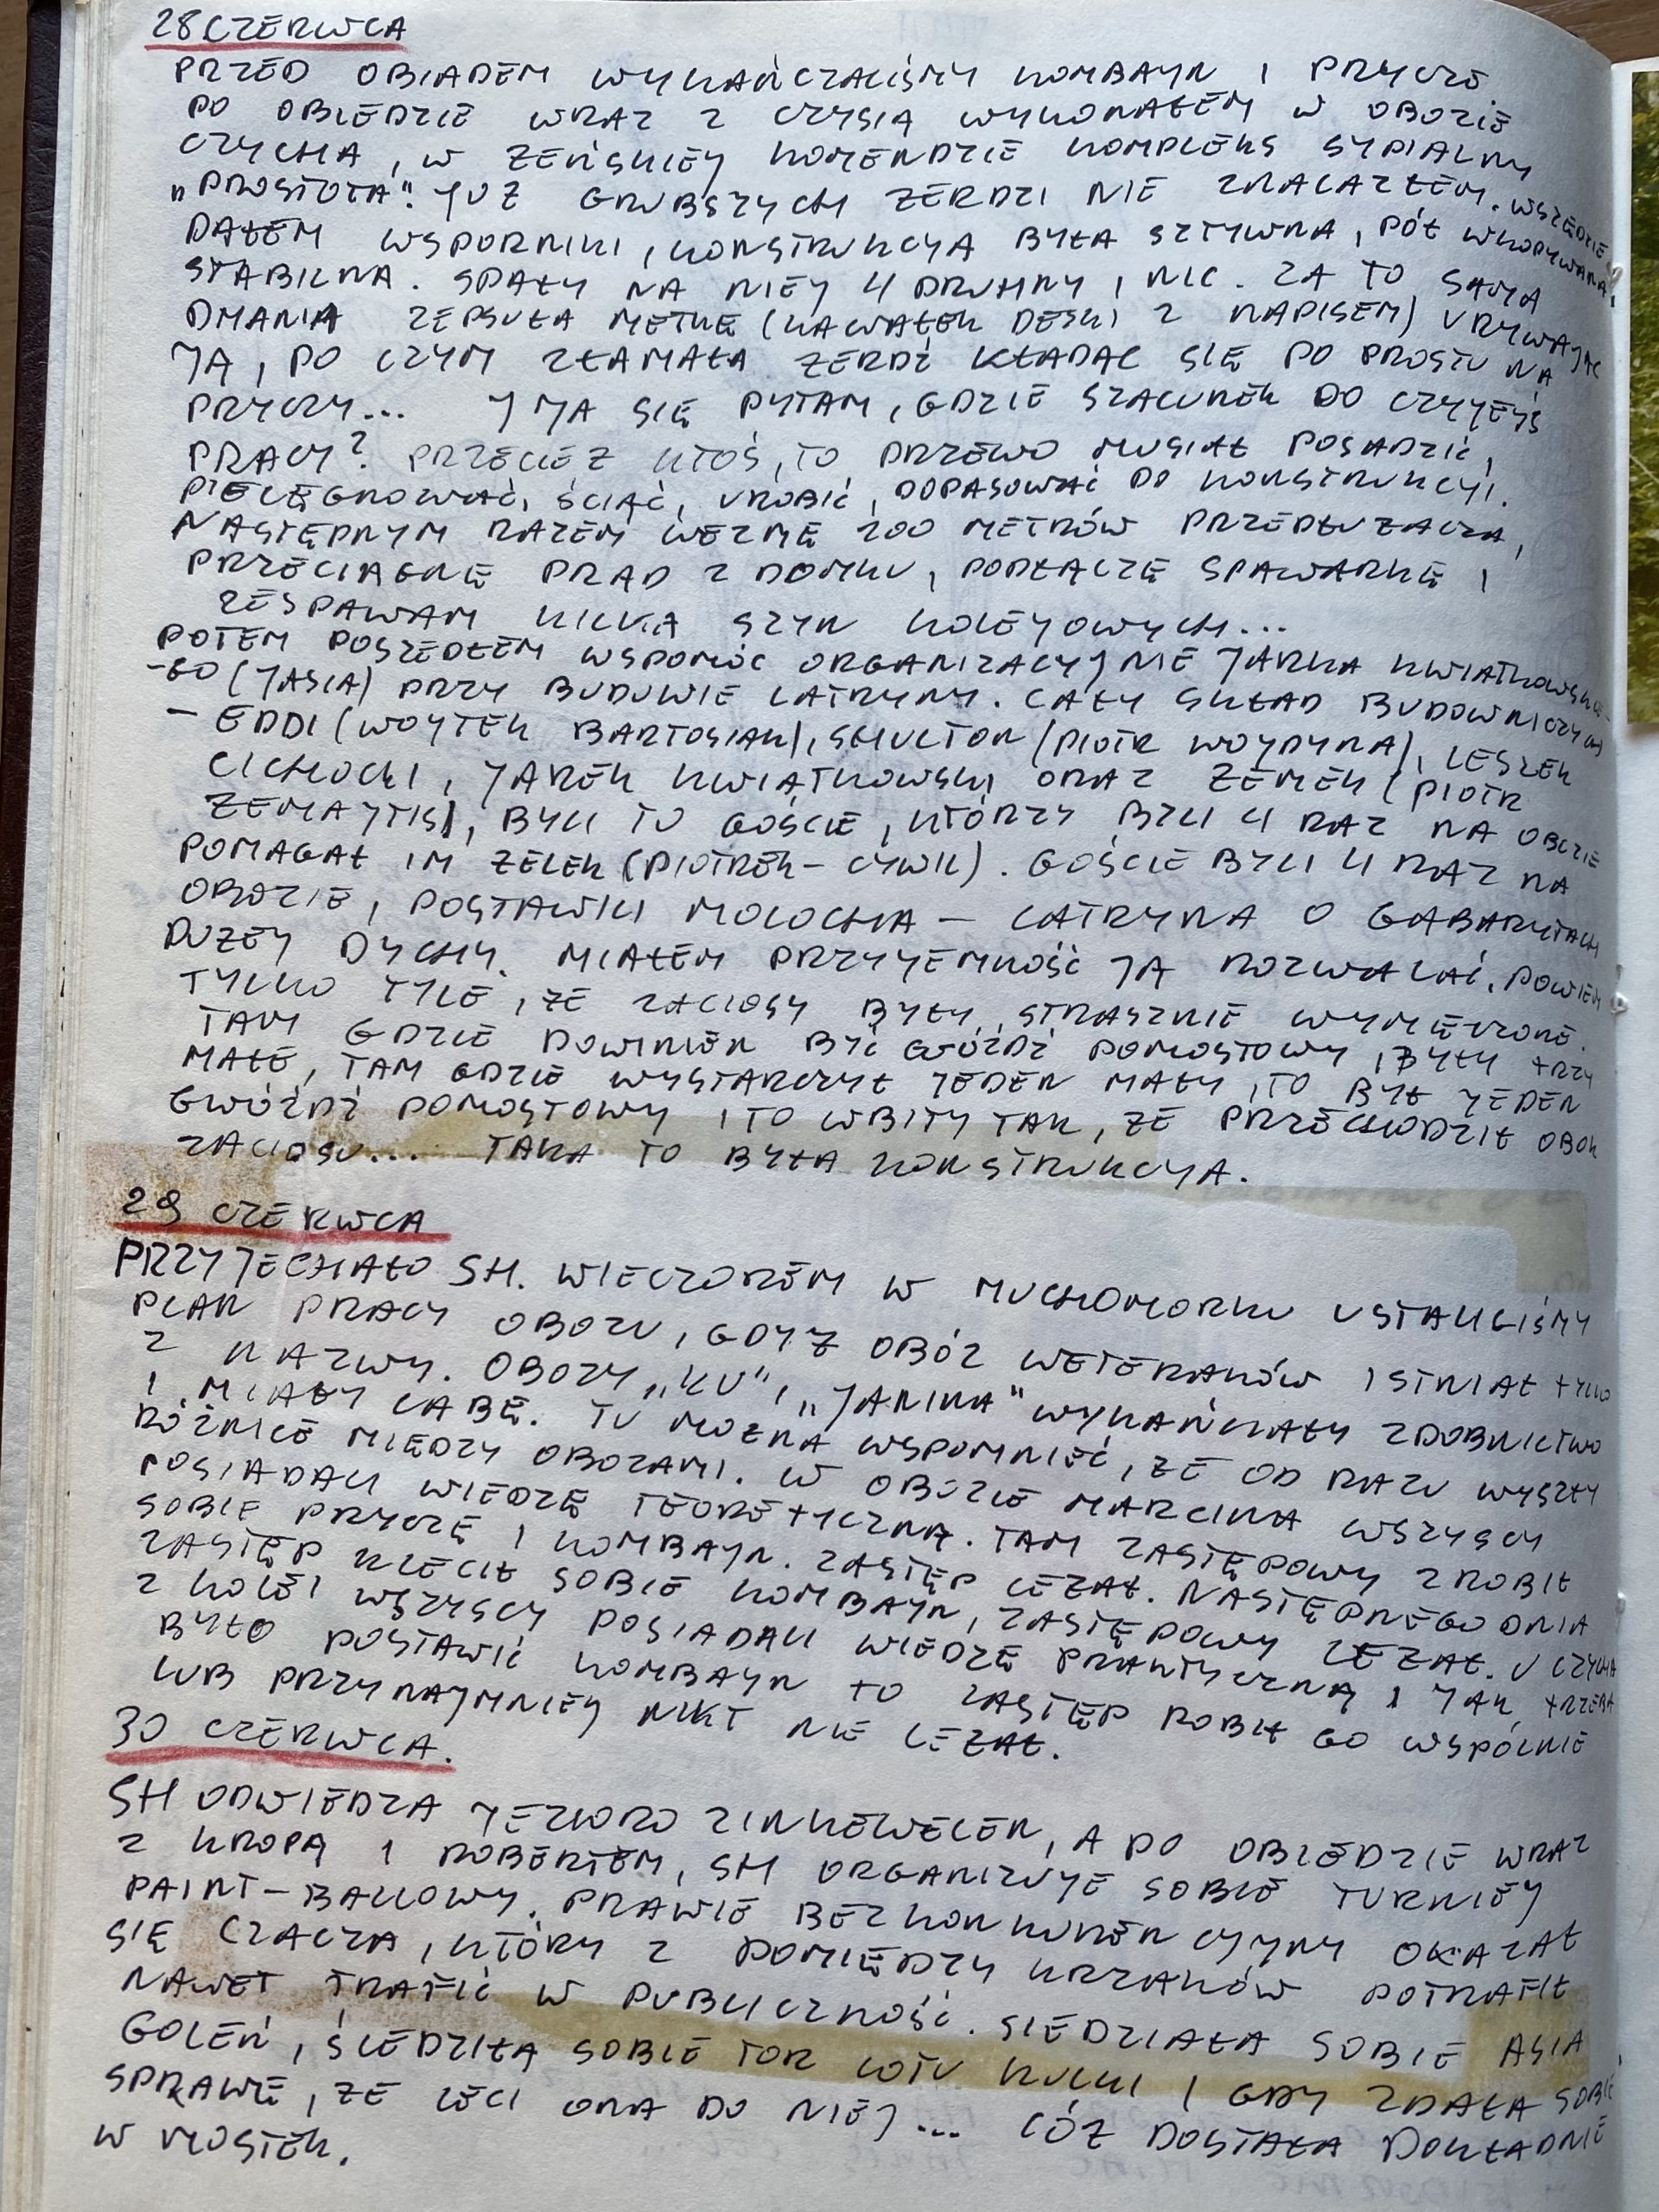 28 CZERWCA
PRZED OBIADEM WYKAŃCZALIŚMY KOMBAYN I PRYCZE
PO OBIEDZIE WRAZ Z CZYSIĄ WYKONAŁEM W OBOZIE
CZYCHA, W ŻEŃSKIEJ KOMENDZIE KOMPLEKS SYPIALNY
"PROSTOTA". JUŻ GRUBSZYCH ŻERDZI NIE ZNALAZŁEM. WSZĘDZIE
DAŁEM WSPORNIKI, KONSTRUKCJA BYŁA SZTYWNA, PÓŁ WKOPYWANA,
STABILNA. SPAŁY NA NIEJ 4 DRUHNY I NIC. ZA TO SAMA
DMANIA ZEPSUŁA METKĘ (KAWAŁEK DESKI Z NAPISEM) URYWAJĄC
JĄ, PO CZYM ZŁAMAŁA ŻERDŹ KŁADĄC SIĘ PO PROSTU NA
PRYCZY... I JA SIĘ PYTAM, GDZIE SZACUNEK DO CZYJEJŚ
PRACY? PRZECIEŻ KTOŚ, TO DRZEWO MUSIAŁ POSADZIĆ,
PIELĘGNOWAĆ, ŚCIĄĆ, UROBIĆ, DOPASOWAĆ DO KONSTRUKCJI.
NASTĘPNYM RAZEM WEZMĘ 200 METRÓW PRZEDŁUŻACZA,
PRZECIĄGNĘ PRĄD Z DOMKU, PODŁĄCZĘ SPAWARKĘ I
ZESPAWAM KILKA SZYN KOLEJOWYCH...
POTEM POSZEDŁEM WSPOMÓC ORGANIZACYJNIE JARKA KWIATKOWSKIE-
-GO (JASIA) PRZY BUDOWIE LATRYNY. CAŁY SKŁAD BUDOWNICZYCH
- EDDI (WOJTEK BARTOSIAK), (PIOTR WOJDYNA), LESZEK
CICHOCKI, JAREK KWIATKOWSKI ORAZ ZEMEK (PIOTR
ZEMAJTIS), BYLI TO GOŚCIE, KTÓRZY BYLI 4 RAZ NA OBOZIE
POMAGAŁ IM ŻELEK (PIOTREK - CYWIL). GOŚCIE BYLI 4 RAZ NA
OBOZIE, I POSTAWILI MOLOCHA - LATRYNA O GABARYTACH
DUŻEJ DYCHY. MIAŁEM PRZYJEMNOŚĆ JĄ ROZWALAĆ. POWIEM
TYLKO TYLE, ŻE ZACIOSY BYŁY STRASZNIE WYMĘCZONE.
TAM GDZIE POWINIEN BYĆ GWÓŹDŹ POMOSTOWY, BYŁY TRZY
MAŁE, TAM GDZIE WYSTARCZYŁ JEDEN MAŁY, TO BYŁ JEDEN
GWÓŹDŹ POMOSTOWY I TO WBITY TAK, ŻE PRZECHODZIŁ OBOK
ZACIOSU... TAKA TO BYŁA KONSTRUKCJA.
29 CZERWCA
PRZYJECHAŁO SH. WIECZOREM W MUCHOMORKU USTALILIŚMY
PLAN PRACY OBOZU, GDYŻ OBÓZ WETERANÓW ISTNIAŁ TYLKO
Z NAZWY. OBOZY "KU", "JANINA" WYKAŃCZAŁY ZDOBNICTWO
I MIAŁY LABĘ. TU MOŻNA WSPOMNIEĆ, ŻE OD RAZU WYSZŁY
RÓŻNICE MIĘDZY OBOZAMI. W OBOZIE MARCINA WSZYSCY
POSIADALI WIEDZĘ TEORETYCZNĄ. TAM ZASTĘPOWY ZROBIŁ
SOBIE PRYCZĘ I KOMBAYN. ZASTĘP LEŻAŁ. NASTĘPNEGO DNIA
ZASTĘP KLECIŁ SOBIE KOMBAYN, ZASTĘPOWY LEŻAŁ. U CZYCHA
Z KOLEI WSZYSCY POSIADALI WIEDZĘ PRAKTYCZNĄ I JAK TRZEBA
BYŁO POSTAWIĆ KOMBAYN TO ZASTĘP ROBIŁ GO WSPÓLNIE
LUB PRZYNAJMNIEJ NIKT NIE LEŻAŁ.
30 CZERWCA.
SH ODWIEDZA JEZIORO ZINKEWELEN, A PO OBIEDZIE WRAZ
Z KROPĄ I ROBERTEM, SH ORGANIZUJE SOBIE TURNIEJ
PAINT-BALLOWY. PRAWIE BEZKONKURENCYJNY OKAZAŁ
SIĘ CZACZA, KTÓRY Z POMIĘDZY KRZAKÓW POTRAFIŁ
NAWET TRAFIĆ W PUBLICZNOŚĆ. SIEDZIAŁA SOBIE ASIA
GOLEŃ, ŚLEDZIŁA SOBIE TOR LOTU KULKI I GDY ZDAŁA SOBIE
SPRAWĘ, ŻE LECI ONA DO NIEJ... CÓŻ DOSTAŁA DOKŁADNIE
W MOSTEK.